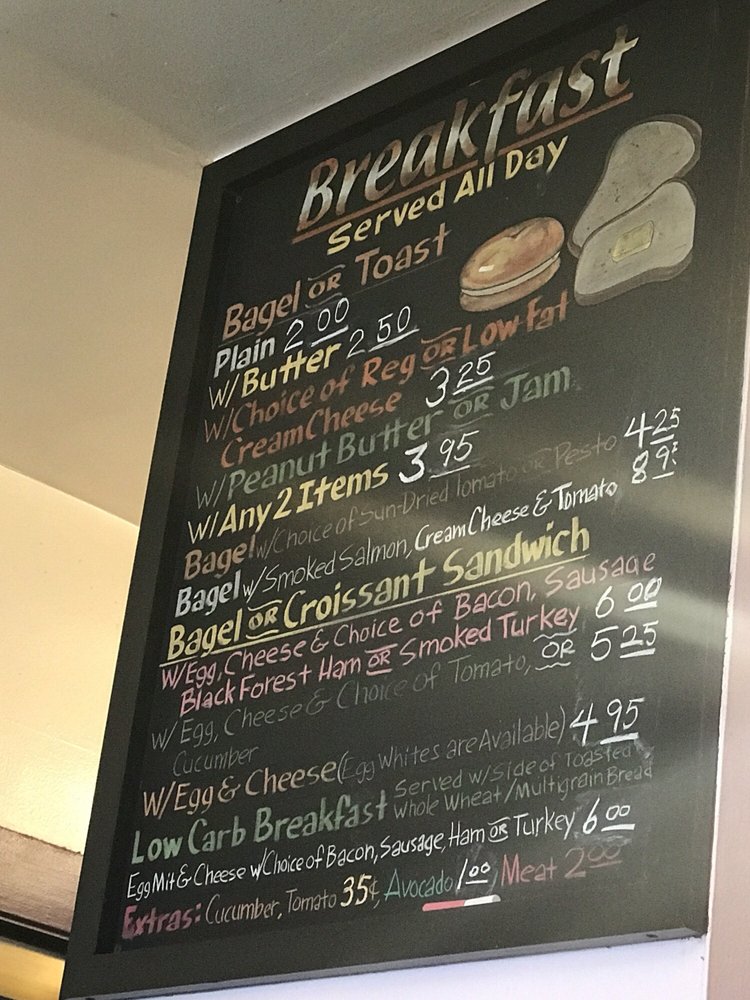 Breakfast
Served All Day
Bagel OR Toast
Plain 2 00
W/Butter 2 50
W/Choice of Reg OR Low Fat
Cream Cheese 3 25
W/Peanut Butter OR Jam
W/Any 2 Items 3 95
Bagel w/Choice of Sun-Dried Tomato OR Pesto 4 25
Bagel w/Smoked Salmon, Cream Cheese & Tomato 8
Bagel OR Croissant Sandwich
W/Egg, Cheese & Choice of Bacon, Sausage
Black Forest Ham OR Smoked Turkey 6 00
W/ Egg, Cheese & Choice of Tomato, OR 5 25
Cucumber
W/Egg & Cheese (Egg Whites are Available) 4 95
Low Carb Breakfast Served w/Side of Toasted
Whole Wheat/Multigrain Bread
Egg Mit & Cheese w/Choice of Bacon, Sausage, Ham OR Turkey 6 00
Extras: Cucumber, Tomato 35¢, Avocado 1 00 Meat 2 00